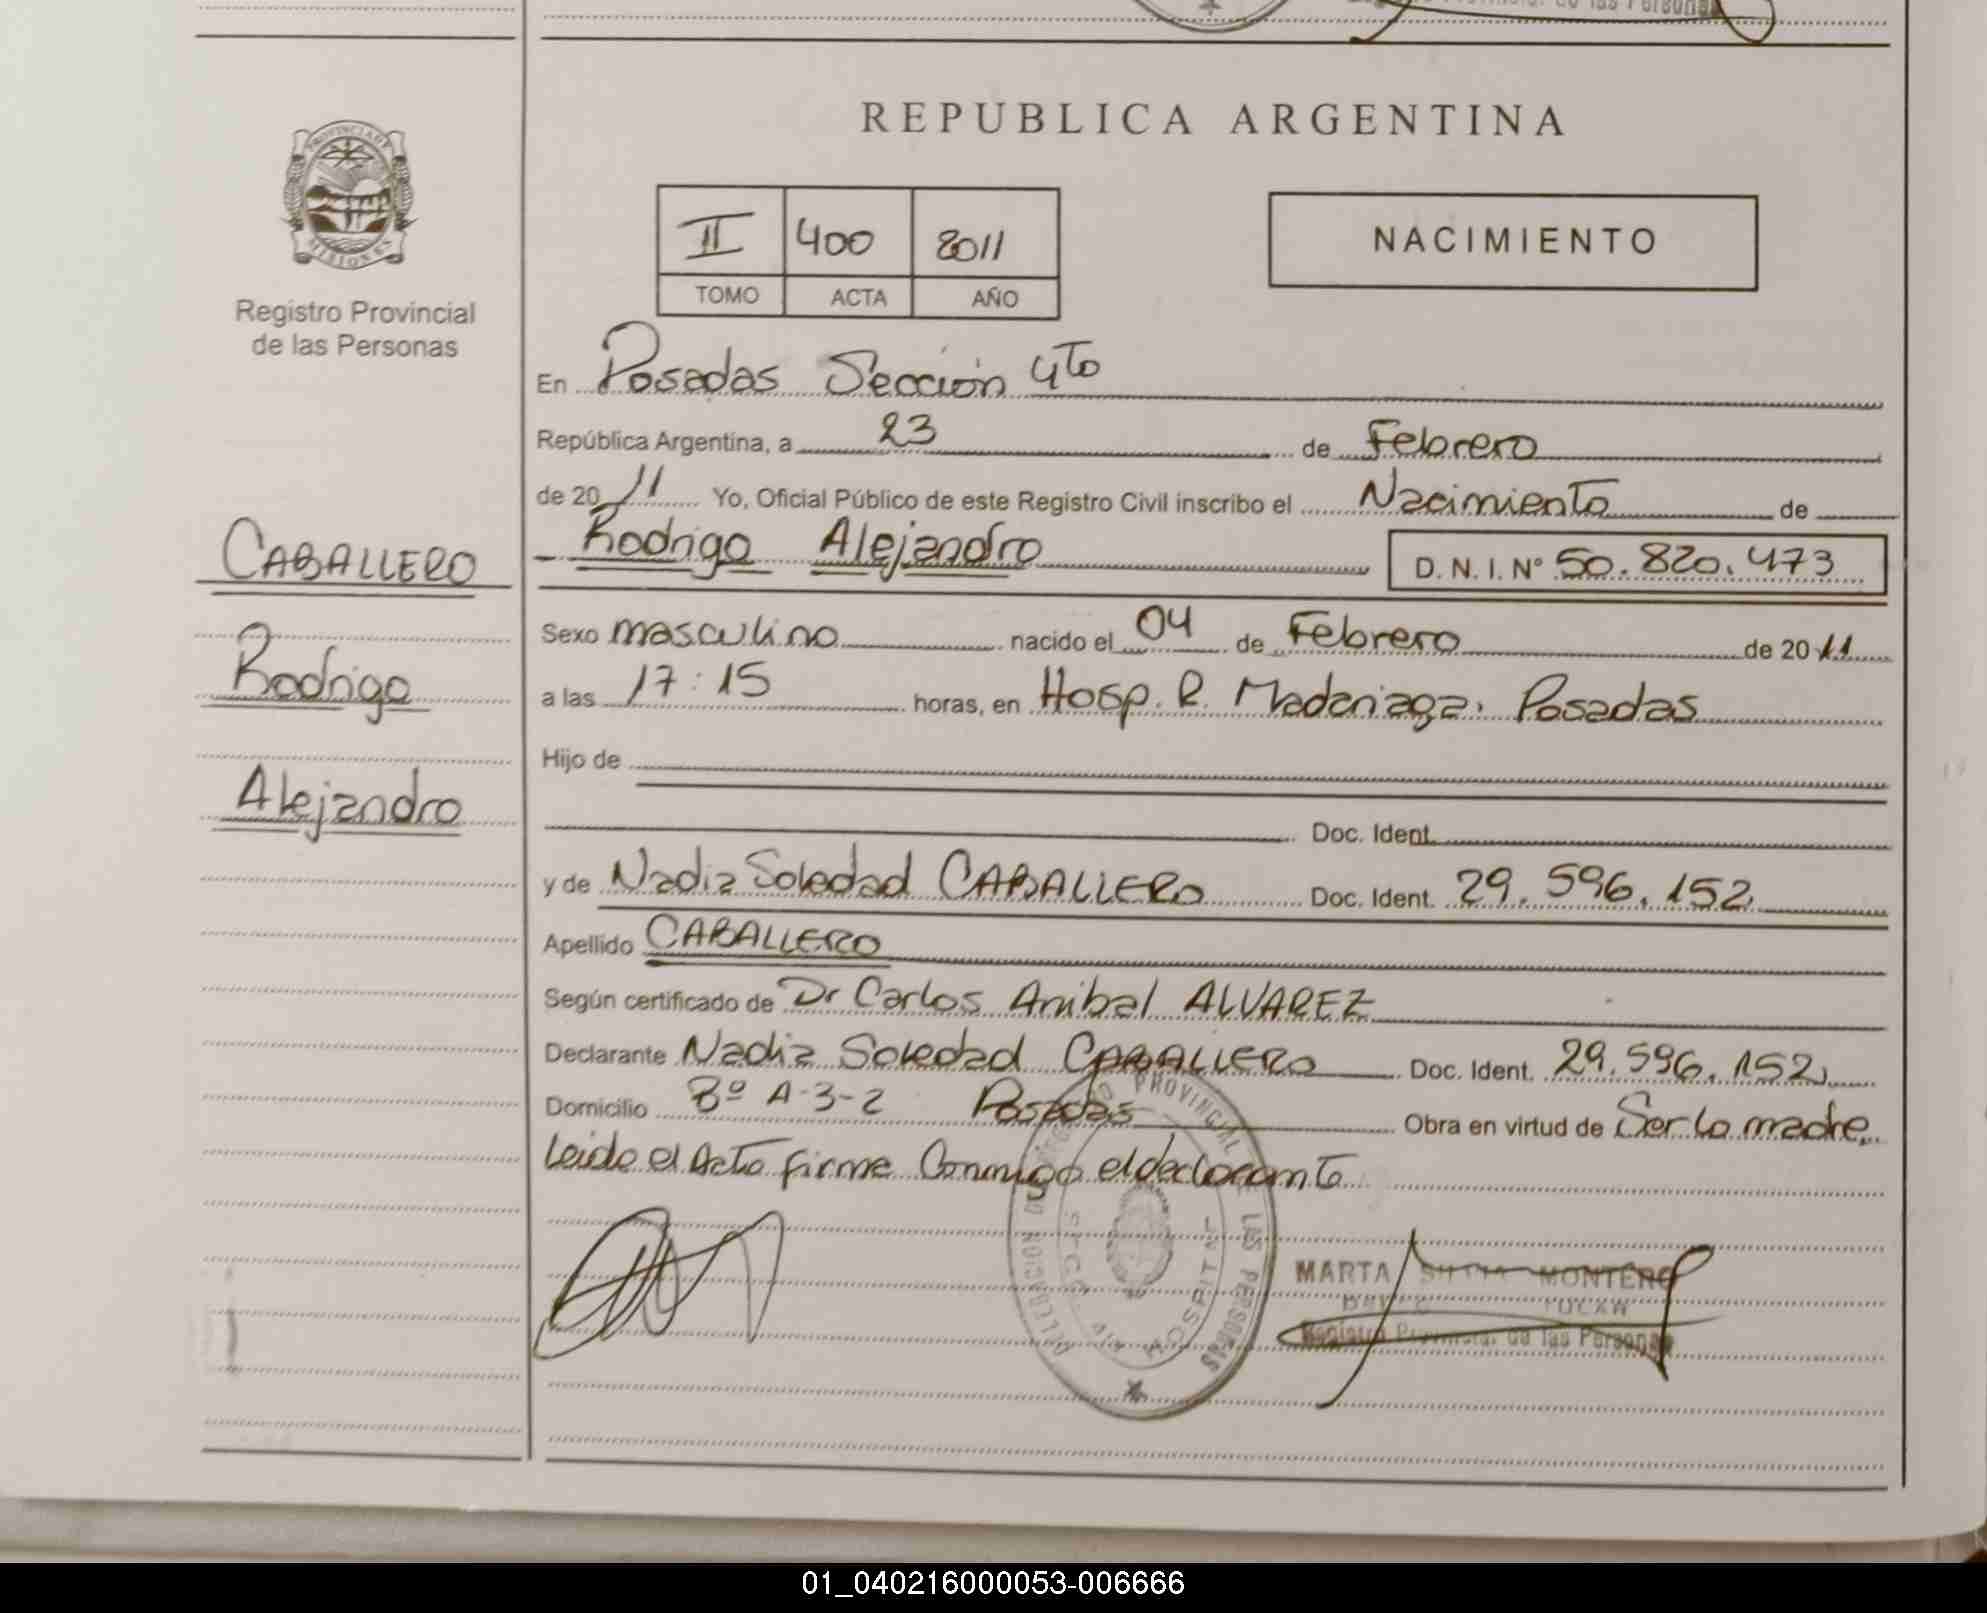 de las Personas
REPUBLICA ARGENTINA
PROVINCIA DE
MISIONES
Registro Provincial
de las Personas
II 400 2011
TOMO ACTA AÑO
NACIMIENTO
En Posadas Sección 4To
República Argentina, a 23 de Febrero
de 2011 Yo, Oficial Público de este Registro Civil inscribo el Nacimiento de
Rodrigo Alejandro D. N. I. Nº 50.820.473
CABALLERO
Rodrigo
Alejandro
Sexo masculino nacido el 04 de Febrero de 2011
a las 17:15 horas, en Hosp. R. Madariaga. Posadas
Hijo de
Doc. Ident.
y de Nadia Soledad CABALLERO Doc. Ident. 29.596.152
Apellido CABALLERO
Según certificado de Dr Carlos Anibal ALVAREZ
Declarante Nadia Soledad CABALLERO Doc. Ident. 29.596.152
Domicilio Bº A-3-2 Posadas Obra en virtud de Ser la madre
Leida el Acta firma Conmigo el declarante
PROVINCIAL DE LAS PERSONAS
HOSPITAL
MARTA SILVIA MONTERO
Registro Provincial de las Personas
01_040216000053-006666